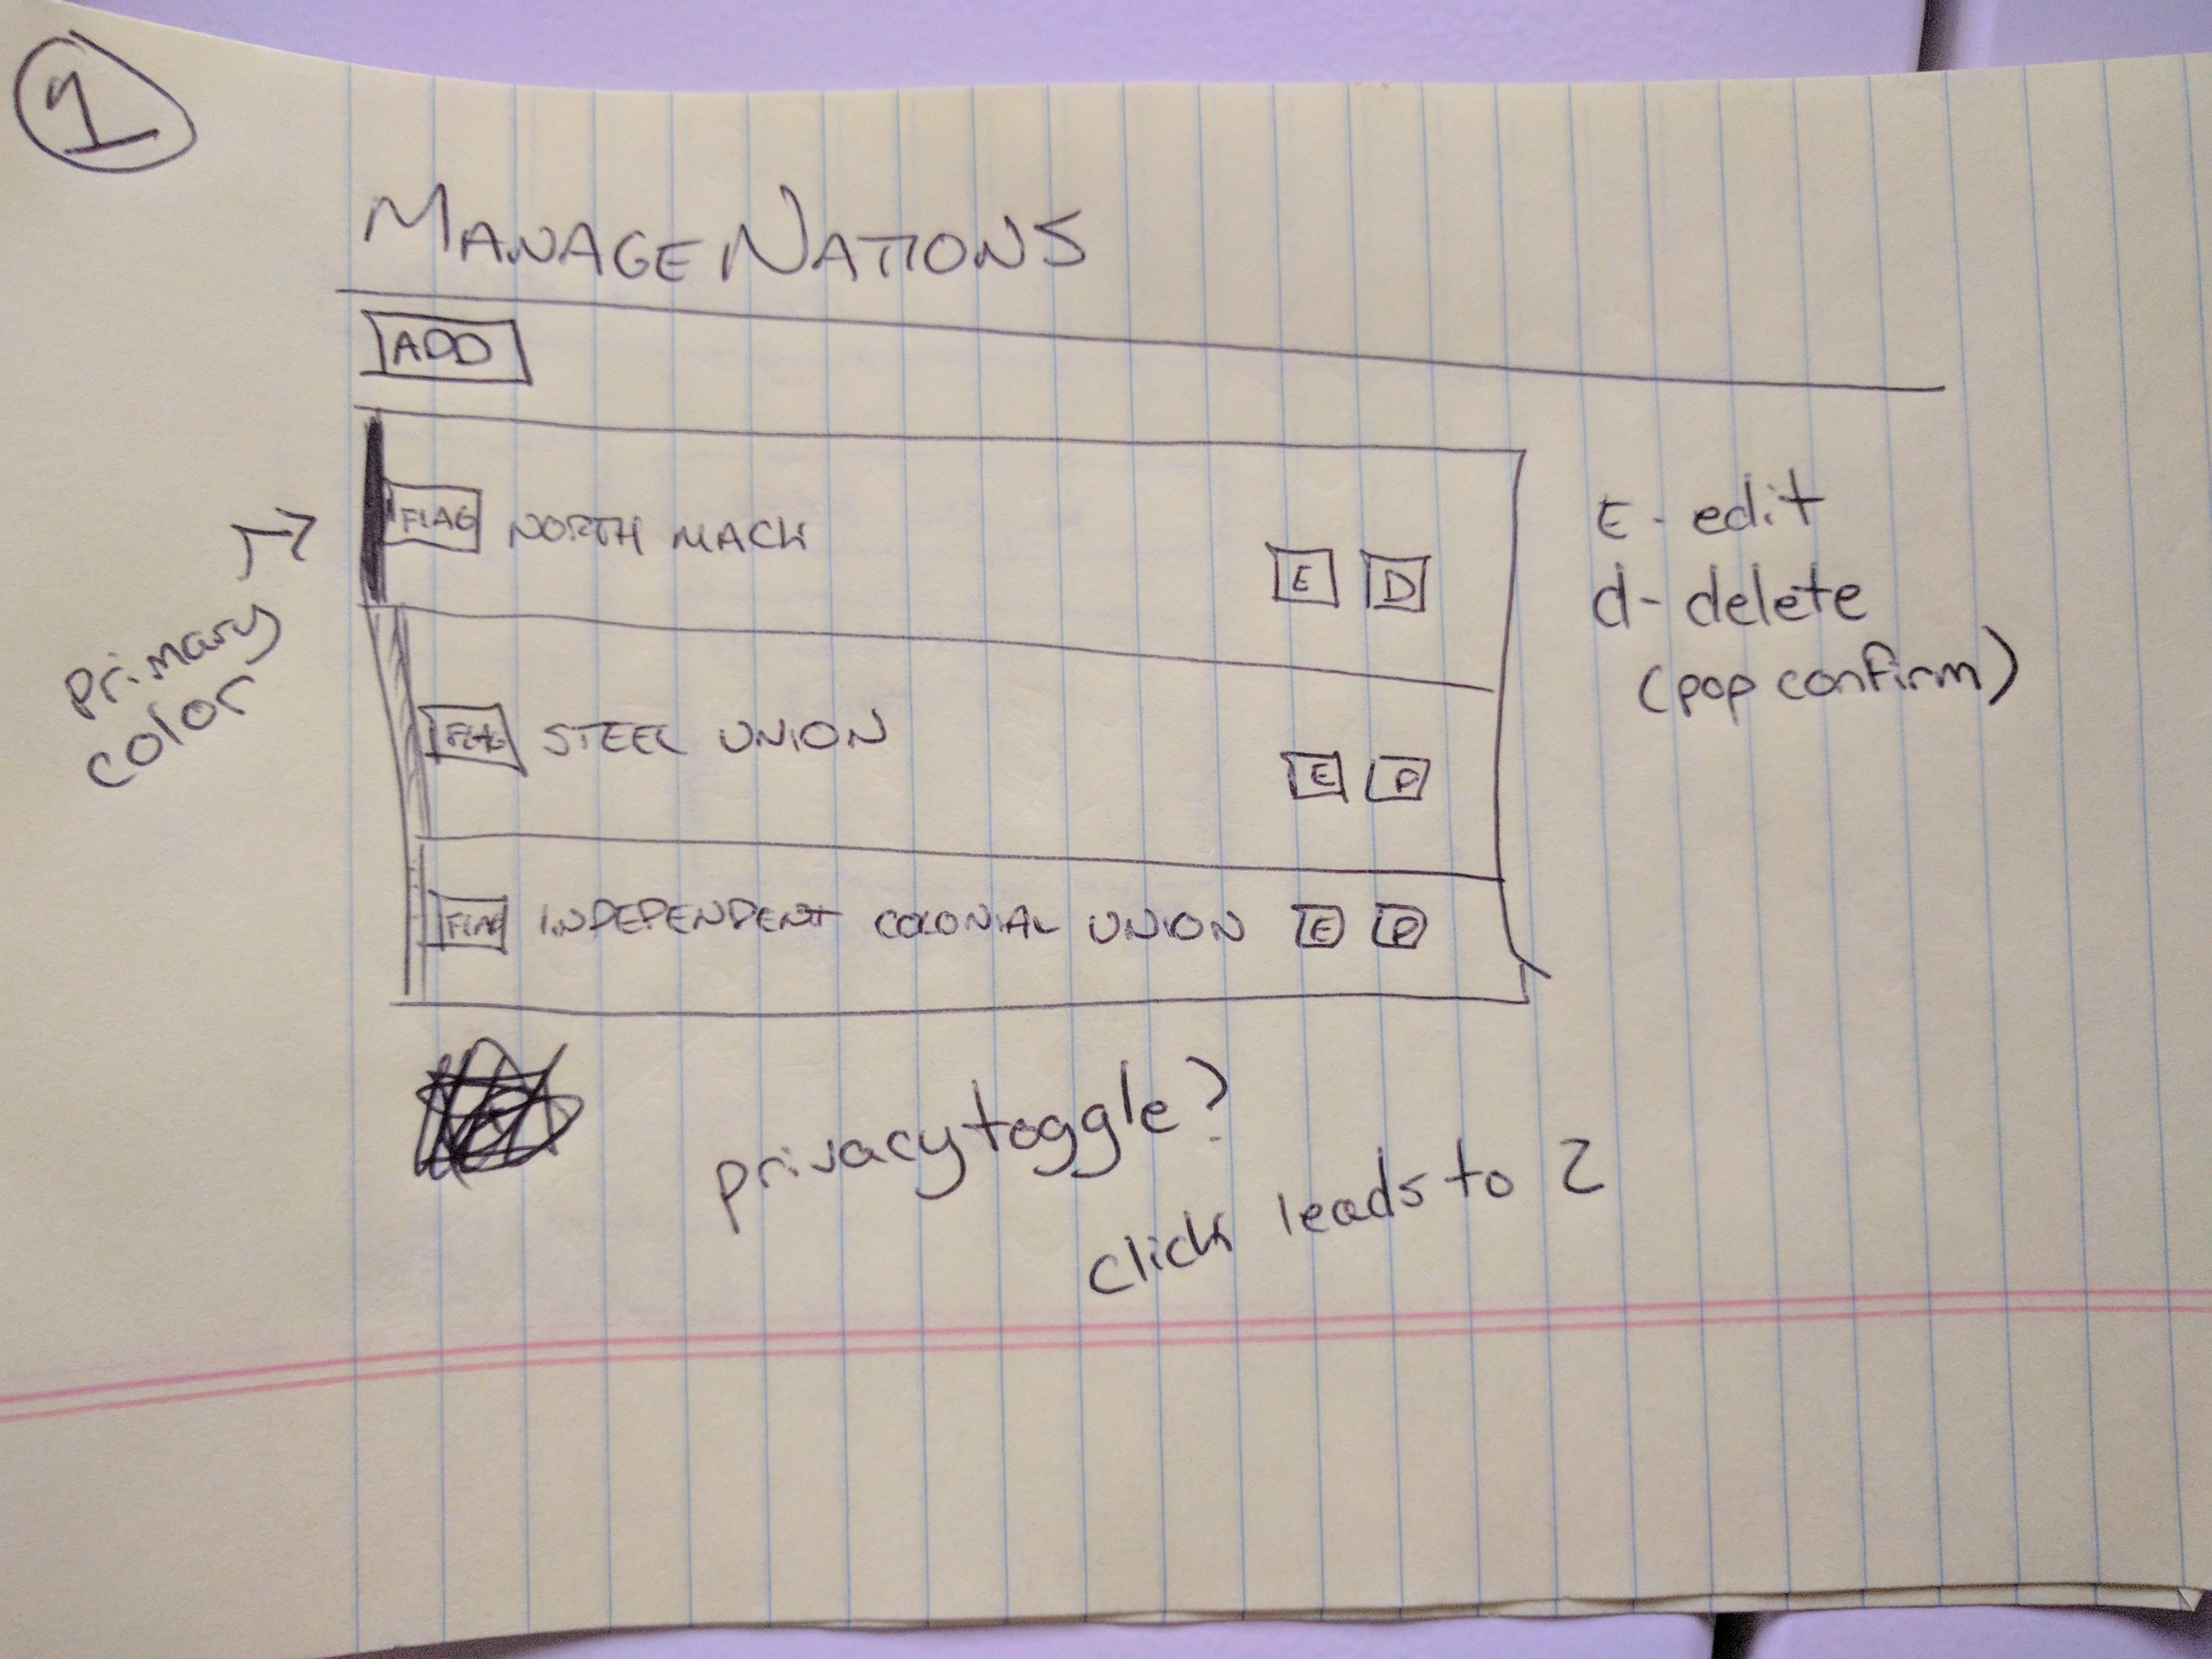 1
MANAGE NATIONS
ADD
FLAG NORTH MACK E D
FLAG STEEL UNION E D
FLAG INDEPENDENT COLONIAL UNION E D
primary
color
E - edit
d - delete
(pop confirm)
privacy toggle?
click leads to 2